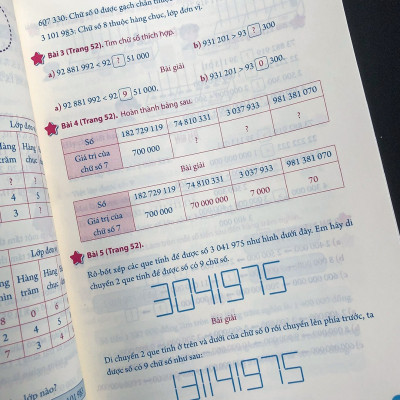 607 330: Chữ số 0 được gạch chân thuộc
3 101 983: Chữ số 8 thuộc hàng chục, lớp đơn vị.
Bài 3 (Trang 52). Tìm chữ số thích hợp.
a) 92 881 992 < 92 ? 51 000 b) 931 201 > 93 ? 300
Bài giải
a) 92 881 992 < 92 9 51 000 b) 931 201 > 93 0 300.
Bài 4 (Trang 52). Hoàn thành bảng sau.
Số 182 729 119 74 810 331 3 037 933 981 381 070
Giá trị của chữ số 7 700 000 ? ? ?
Bài giải
Số 182 729 119 74 810 331 3 037 933 981 381 070
Giá trị của chữ số 7 700 000 70 000 000 7 000 70
Bài 5 (Trang 52).
Rô-bốt xếp các que tính để được số 3 041 975 như hình dưới đây. Em hãy di
chuyển 2 que tính để được số có 9 chữ số.
3041975
Bài giải
Di chuyển 2 que tính ở trên và dưới của chữ số 0 rồi chuyển lên phía trước, ta
được số có 9 chữ số như sau:
131141975
Lớp đơn
Hàng trăm Hàng chục
? ?
4 5
3 ?
Lớp đơn
Hàng trăm Hàng chục
8 0 6
2 4 5
7 3 4
lớp nào?